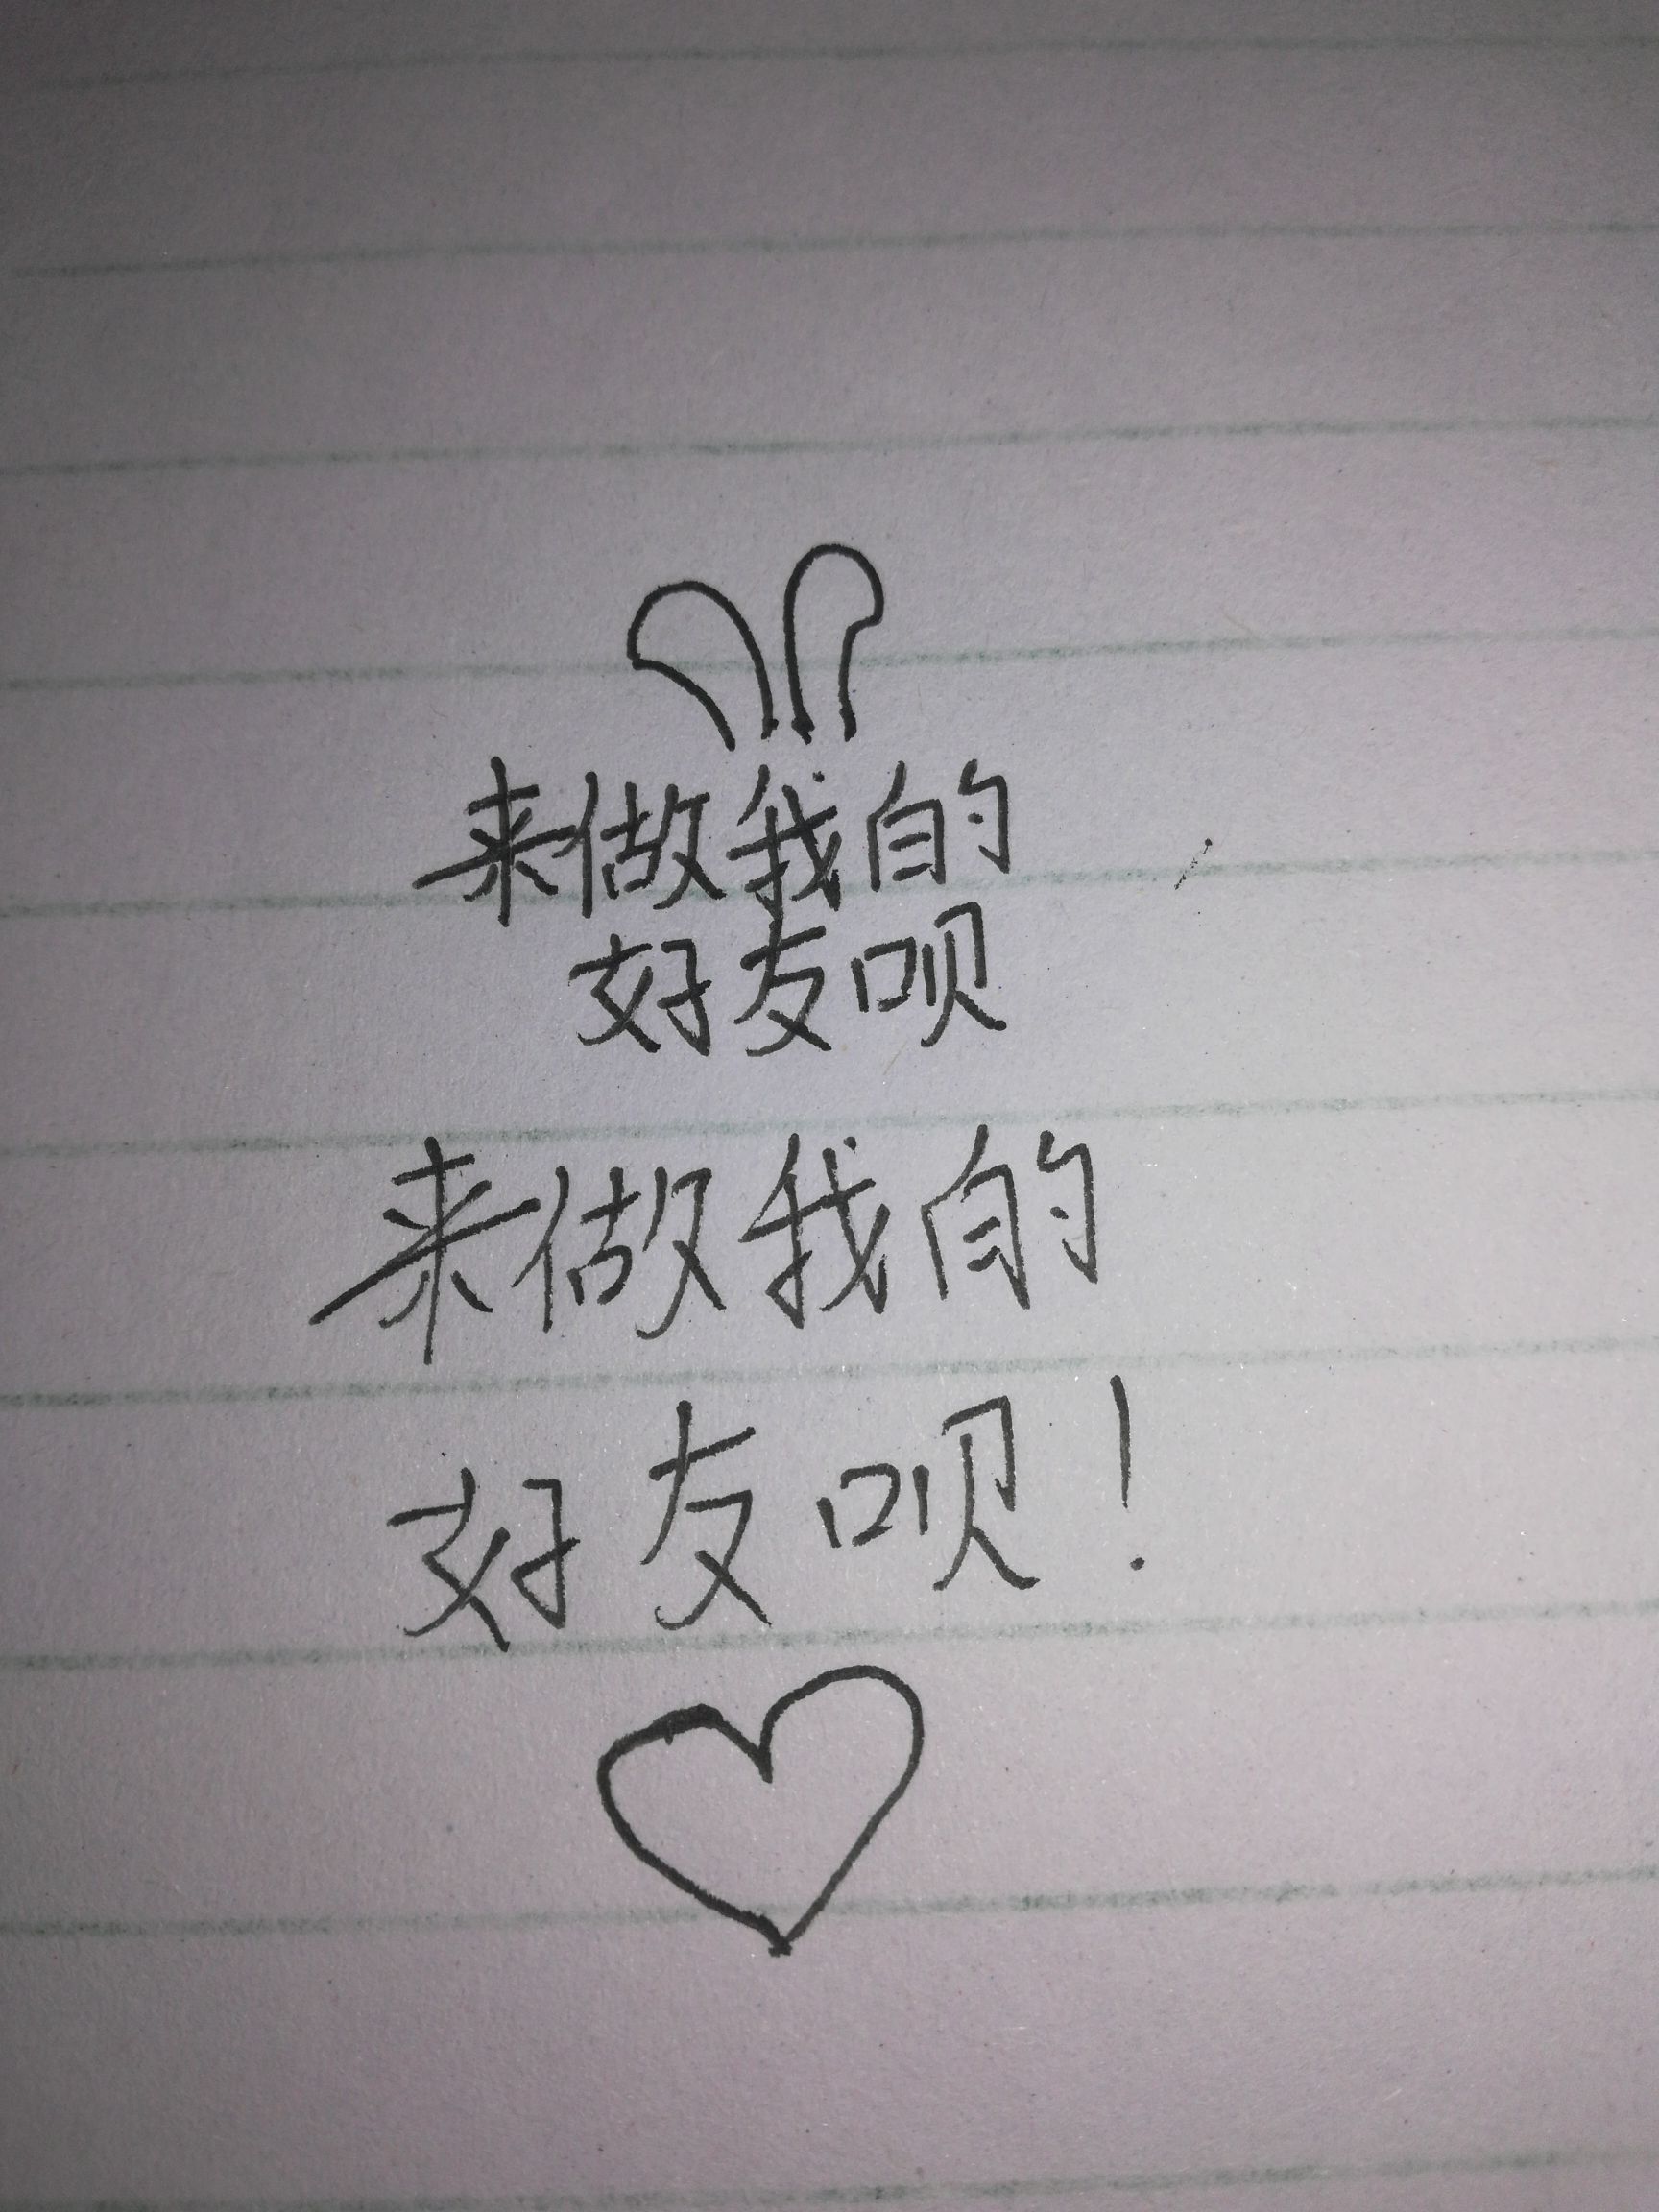 来做我的
好友呗
来做我的
好友呗！